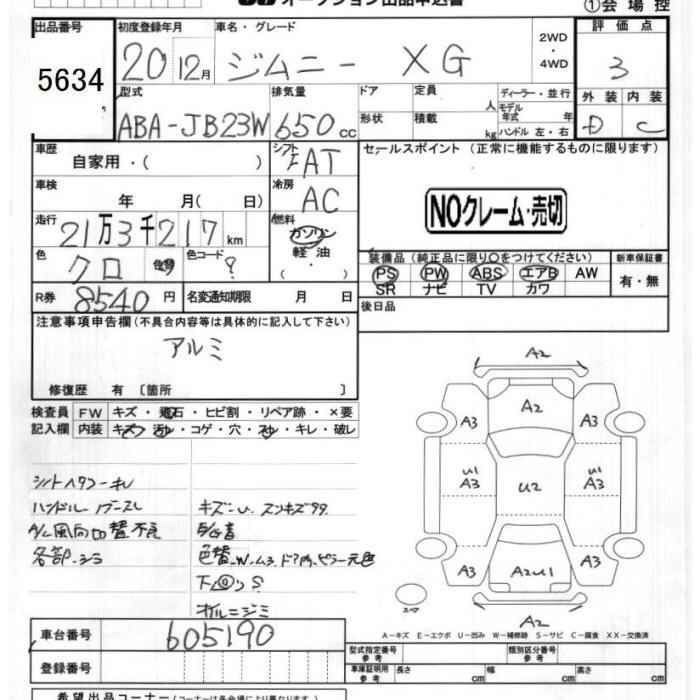 オークション出品申込書
①会場控
出品番号
5634
初度登録年月
20 12月
車名・グレード
ジムニー XG
2WD
・
4WD
評価点
3
外装 内装
D C
型式
ABA-JB23W
排気量
650cc
ドア
定員
人
形状
積載
kg
ディーラー・並行
モデル年式 年
ハンドル 左・右
車歴
自家用・( )
シフト
FAT
車検
年 月( 日)
冷房
AC
走行
21万3千217km
燃料
ガソリン
軽油
・( )
色
クロ
色替
色コード
?
R券
8540円
名変通知期限 月 日
セールスポイント (正常に機能するものに限ります)
NOクレーム・売切
装備品(純正品に限り○をつけてください)
PS PW ABS エアB AW
SR ナビ TV カワ
新車保証書
有・無
後日品
注意事項申告欄(不具合内容等は具体的に記入して下さい)
アルミ
修復歴 有 〔箇所 〕
検査員記入欄
FW キズ・飛石・ヒビ割・リペア跡・×要
内装 キズ・汚れ・コゲ・穴・スレ・キレ・破レ
ハンドル
A/C風向切替不良
各部.シミ
キズ-U.
色替
A2
A2
A3
A3
U1
A3
U2
U1
A3
A3
A2U1
A3
A2
スペア
A-キズ E-エクボ U-凹み W-補修跡 S-サビ C-腐食 XX-交換済
車台番号
605190
登録番号
型式指定番号
参考
類別区分番号
参考
車庫証明用
参考
長さ cm
幅 cm
高さ cm
希望出品コーナー(コーナーは各会場により異なります)